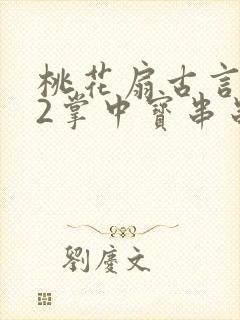 桃花扇古言
2掌中寳串
劉慶文